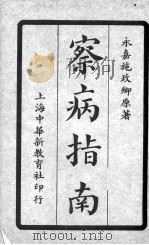 永嘉施政卿原著
察病指南
上海中華新教育社印行